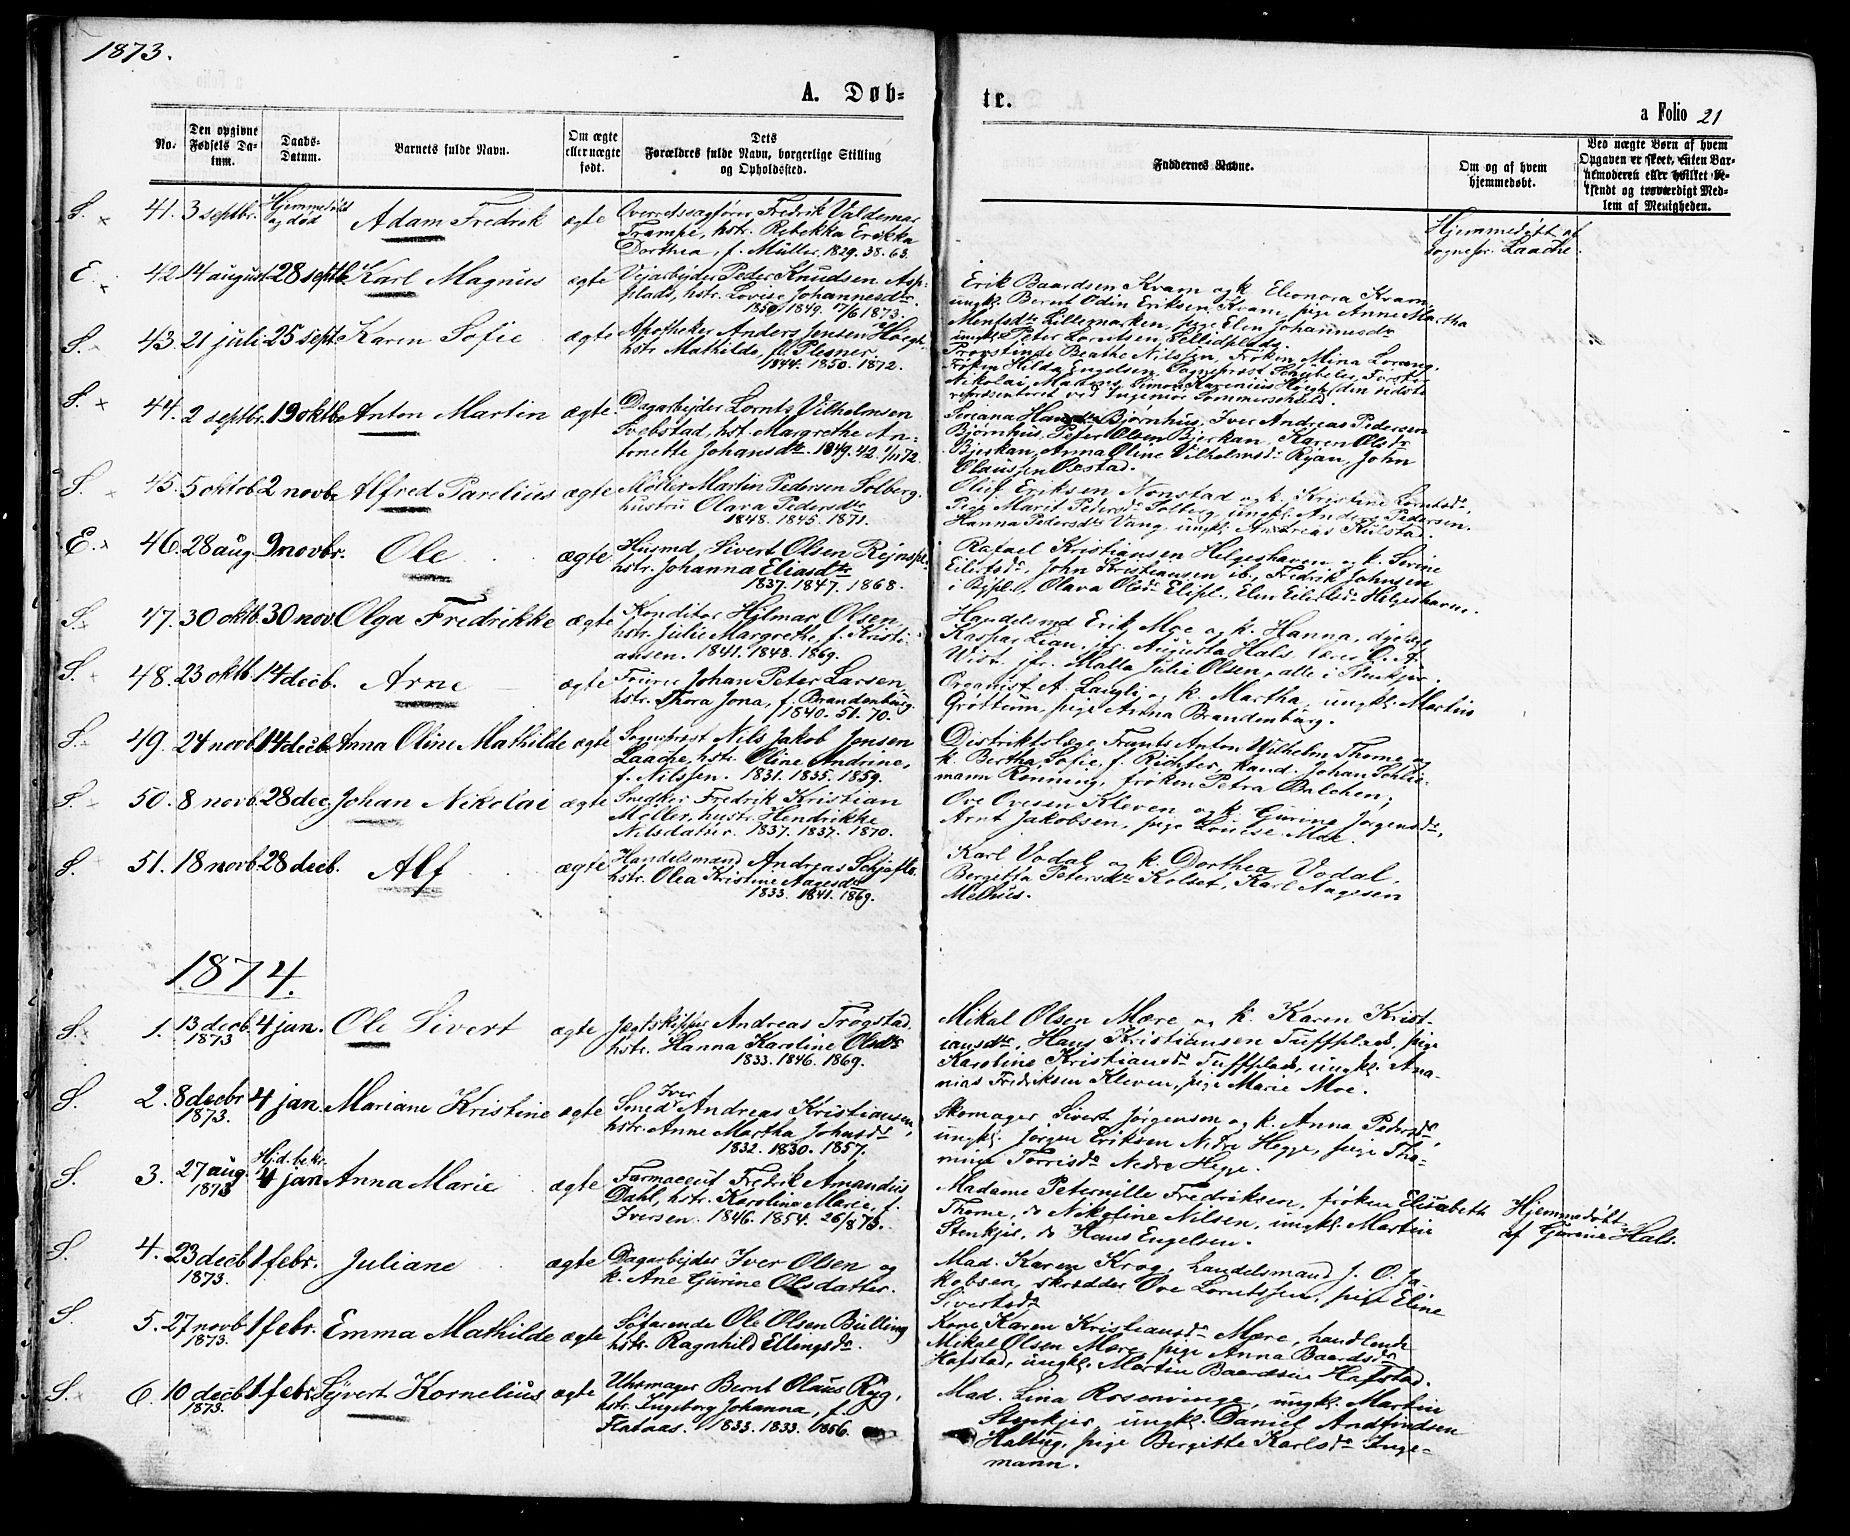 1873.
A. Døb-
te.
a Folio 21
No.
Den opgivne Fødsels Da-tum.
Daabs-Datum.
Barnets fulde Navn.
Om ægte eller uægte født.
Dets Forældres fulde Navn, borgerlige Stilling og Opholdssted.
Faddernes Navne.
Om og af hvem hjemmedøbt.
Ved uægte Børn af hvem Opgaven er skeet, enten Bar-nemoderen eller hvilket be-kjendt og troværdigt Med-lem af Menigheden.
S. × 41. 3 septbr. Hjemmedøbt og død Adam Fredrik ægte
Overretssagfører Fredrik Valdemar
Trampe, hstr. Rebekka Erikka
Dorthea, f. Müller. 1829. 38. 63.
Hjemmedøbt af
sognepr. Laache.
E. × 42. 14 august 28 septb. Karl Magnus ægte
Vejarbejder Peder Knudsen Asp-
plads, hstr. Lovise Johannesdtr.
1849. /6 1873.
Erik Baardsen Kvam og k. Eleonora Kvam,
ungk. Bernt Odin Eriksen Kvam, pige Anne Martha
S. × 43. 21 juli 25 sept. Karen Sofie ægte
Apotheker Anders Jensen Høegh
hstr. Mathilde, f. Plesner.
1844. 1850. 1872.
Lillemarken, pige Elen Johannesdr
ungk. Peter Lorntsen
Provstinde Beathe Nilssen, Frøken Mina Lorang,
Frøken Hilda Engelsen, Sognepræst Schübeler, Forster
Nikolai Simon Karenius Høegh (den sidste
repræsenteret ved Ingeniør Sommerscheld.
S. × 44. 2 septbr. 19 oktb. Anton Martin ægte
Dagarbejder Lornts Vilhelmsen
hst. Margrethe An-
tonette Johansdtr. 1849. 42. 72.
Seriana Hansdtr Bjørnhus, Iver Andreas Pedersen
Bjørnhus, Peter Olsen Bjerkan, Karen Olsdr
Bjerkan, Anna Oline Vilhelmsdr Ryan, John
Olaussen Oxstad.
S. × 45. 5 oktob. 2 novbr. Alfred Parelius ægte
Møller Martin Pedersen Solberg.
hustru Olava Pedersdtr
1848. 1845. 1871.
Oluf Eriksen Nonstad og k. Kristine
Pige Marit Pedersdr Solberg, ungk. Anders Pedersen.
Hanna Pedersdtr Vang, ungk. Andreas
E. × 46. 28 aug. 9 novbr. Ole ægte
Husmd. Sivert Olsen
hstr. Johanna Eliasdtr
1837. 1847. 1868.
Rafael Kristiansen Helgeshavn og k. Serine
Eilertsdr, John Kristiansen ib., Fredrik Johnsen
i Bypl., Olava Olsdr Elipl., Elen Eilertsdr Helgeshavn.
S. 47. 30 oktb. 30 nov. Olga Fredrikke ægte
Konditor Hilmar Olsen,
hstr. Julie Margrethe, f. Kristi-
ansen. 1841. 1848. 1869.
Handelsmd Erik Moe og k. Hanna,
Kaspar Lian, fr. Augusta Hals, lærer O. A.
Wist. jfr. Malla Julie Olsen, alle i Stenkjær.
S. 48. 23 oktb. 14 decb. Arne ægte
Fourer Johan Peter Larsen,
hstr. Thora Jona, f. Brandenburg.
1840. 51. 70.
Organist A. Langli og k. Martha, ungk. Martin
Grøttum, pige Anna Brandenburg.
S. 49. 24 novb. 14 decb. Anna Oline Mathilde ægte
Sognepræst Nils Jakob Jensen
Laache, hstr. Oline Andrine,
f. Nilssen. 1831. 1835. 1859.
Distriktslæge Frants Anton Wilhelm Thorne og
k. Bertha Sofie, f. Richter, kand. Johan Schlie-
mann Rönning, frøken Petra Balchen;
S. 50. 8 novb. 28 dec. Johan Nikolai ægte
Snedker Fredrik Kristian
Møller, hustr. Hendrikke
Nilsdatter. 1837. 1837. 1870.
Ove Ovesen Kleven og k. Gurine Jørgensdr,
Arnt Jakobsen, pige Louise Moe.
S. 51. 18 novb. 28 decb. Alf ægte
Handelsmand Andreas
hstr. Olea Kristine Aagesdtr
1833. 1841. 1869.
Karl Vodal og k. Dorthea Vodal,
Bergitta Petersdtr Kolset, Karl Aagesen
Melhus.
1874.
S. 1. 13 decb. 1873 4 jan. Ole Sivert ægte
Jægtskipper Andreas Trøgstad.
hstr. Hanna Karoline Olsdtr
1833. 1846. 1869.
Mikal Olsen Mære og k. Karen Krist-
iansdtr, Hans Kristiansen Tuffplads, pige
Karoline Kristiansdr Tuffplads, ungk. Ana-
nias Fredriksen Kleven, pige Marie Moe.
S. 2. 8 decbr 1873. 4 jan. Mariane Kristine ægte
Iver
Smed Andreas Kristiansen,
hstr. Anne Martha Johnsdr
1832. 1830. 1857.
Skomager Sivert Jørgensen og k. Anna Pedersdr,
ungk. Jørgen Eriksen Nedre Hegge, pige Tho-
mine Torrisdr Nedre Hegge.
S. 3. 27 aug. 1873 Hjd. bekr. 4 jan Anna Marie ægte
Farmaceut Fredrik Amandus
Dahl, hstr. Karoline Marie, f.
Iversen. 1846. 1854. 26/8 73.
Madame Peternille Fredriksen, frøken Elisabeth
Thorne, do Nikoline Nilsen, ungk. Martin
Stenkjer, do Hans Engelsen.
Hjemmedøbt
af Gurine Hals.
S. 4. 23 decb 1873. 1 febr. Juliane ægte
Dagarbejder Iver Olsen og
k. Ane Gurine Olsdatter.
Mad. Karen Krog, handelsmand J. O. Ja-
kobsen, skrædder Ove Lorntssen, pige Eline
Sivertsdr
S. 5. 27 novb 1873. 1 febr. Emma Mathilde ægte
Søfarende Ole Olsen Bulling
hstr. Ragnhild Ellingsdr.
Kone Karen Kristiansdr Mære, handlende
Mikal Olsen Mære, pige Anna Baardsdr
Hafstad, ungk. Martin Baardsen Hafstad.
S. 6. 10 decb 1873. 1 febr. Sivert Kornelius ægte
Uhrmager Bernt Olaus Ryg,
hstr. Ingeborg Johanna, f.
Flatnas. 1833. 1833. 1856.
Mad. Lina Rosenvinge, ungk. Martin
Stenkjer, ungk. Daniel Andfindsen
Haltug, pige Bergitte Karlsdr Inge-
mann.